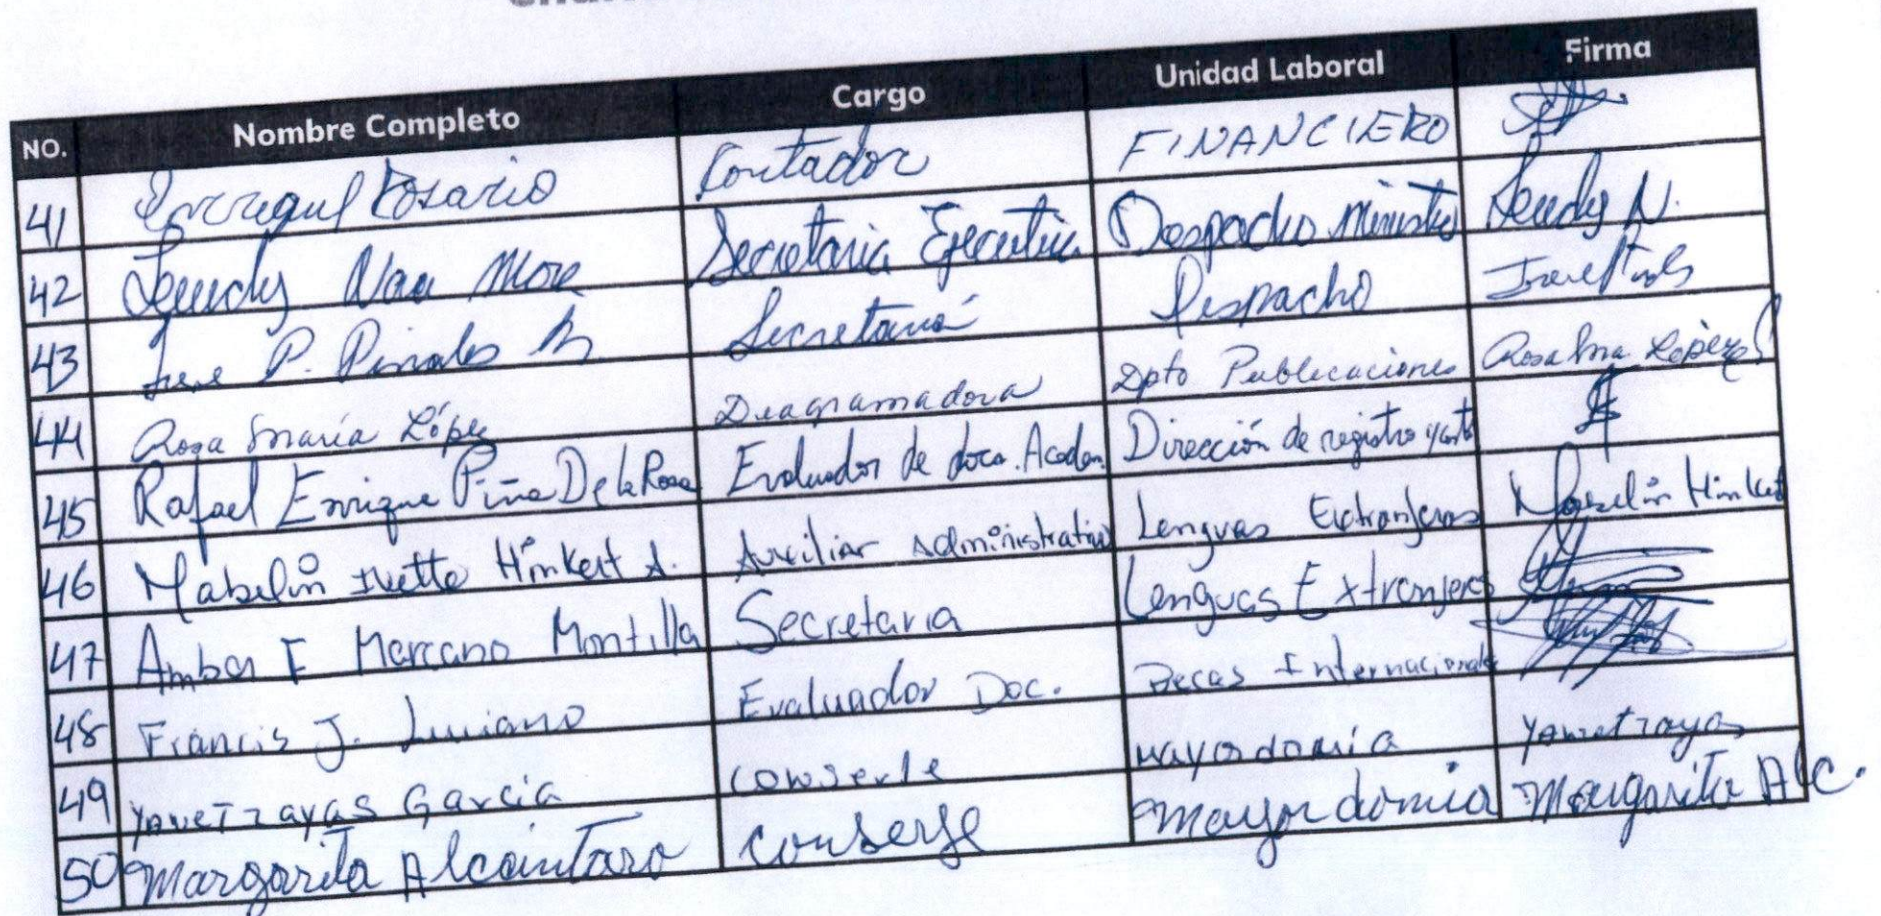 NO. Nombre Completo Cargo Unidad Laboral Firma
41 Rosario Contador FINANCIERO
42 Leudy Nau More Secretaria Ejecutiva Despacho Ministro Leudy N.
43 Irene P. Pinales M Secretaria Despacho
44 Rosa María López Diagramadora Dpto Publicaciones Rosa Ma. López
45 Rafael Enrique Piña De la Rosa Evaluador de docs. Academ. Dirección de registro
46 Mabelin Ivette Hinkert A. Auxiliar administrativo Lenguas Extranjeras Mabelin Hinkert
47 Amber F Marcano Montilla Secretaria Lenguas Extranjeras
48 Francis J. Luciano Evaluador Doc. Becas Internacionales
49 Yanet zayas García conserle mayordomia Yanet zayas
50 Margarita Alcantara conserje mayordomia Margarita Alc.